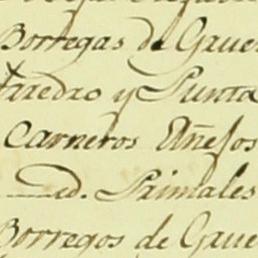 Borregas de Gue
taredro y Punta
Carneros Añejos
Id. Primales
Borregos de Gue